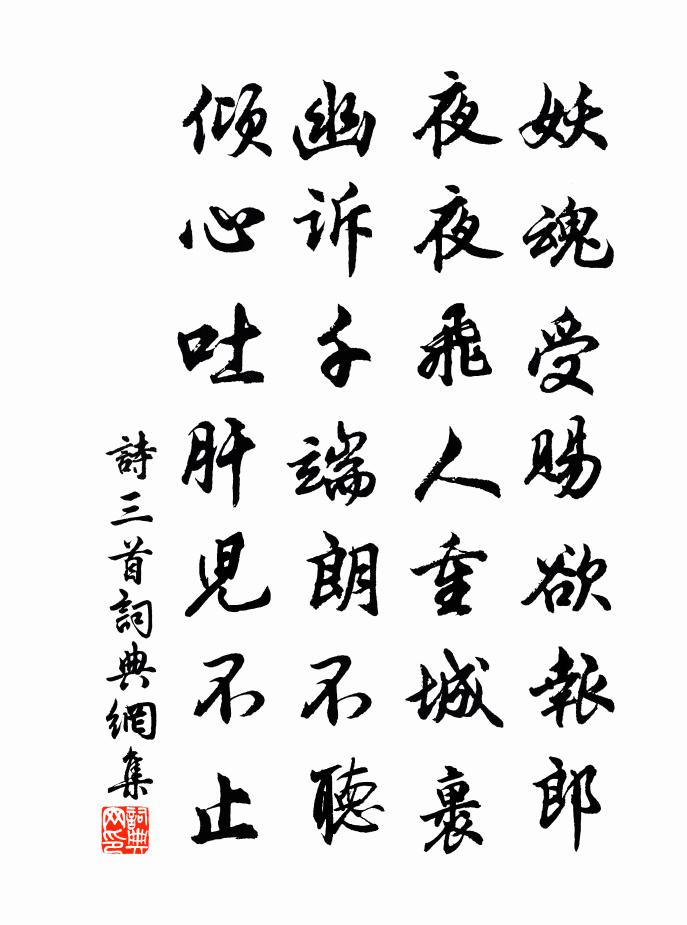 妖魂受賜欲報郎
夜夜飛人重城裹
幽訴千端朗不聽
傾心吐肝兒不止
詩三首詞典網集
詞典网印